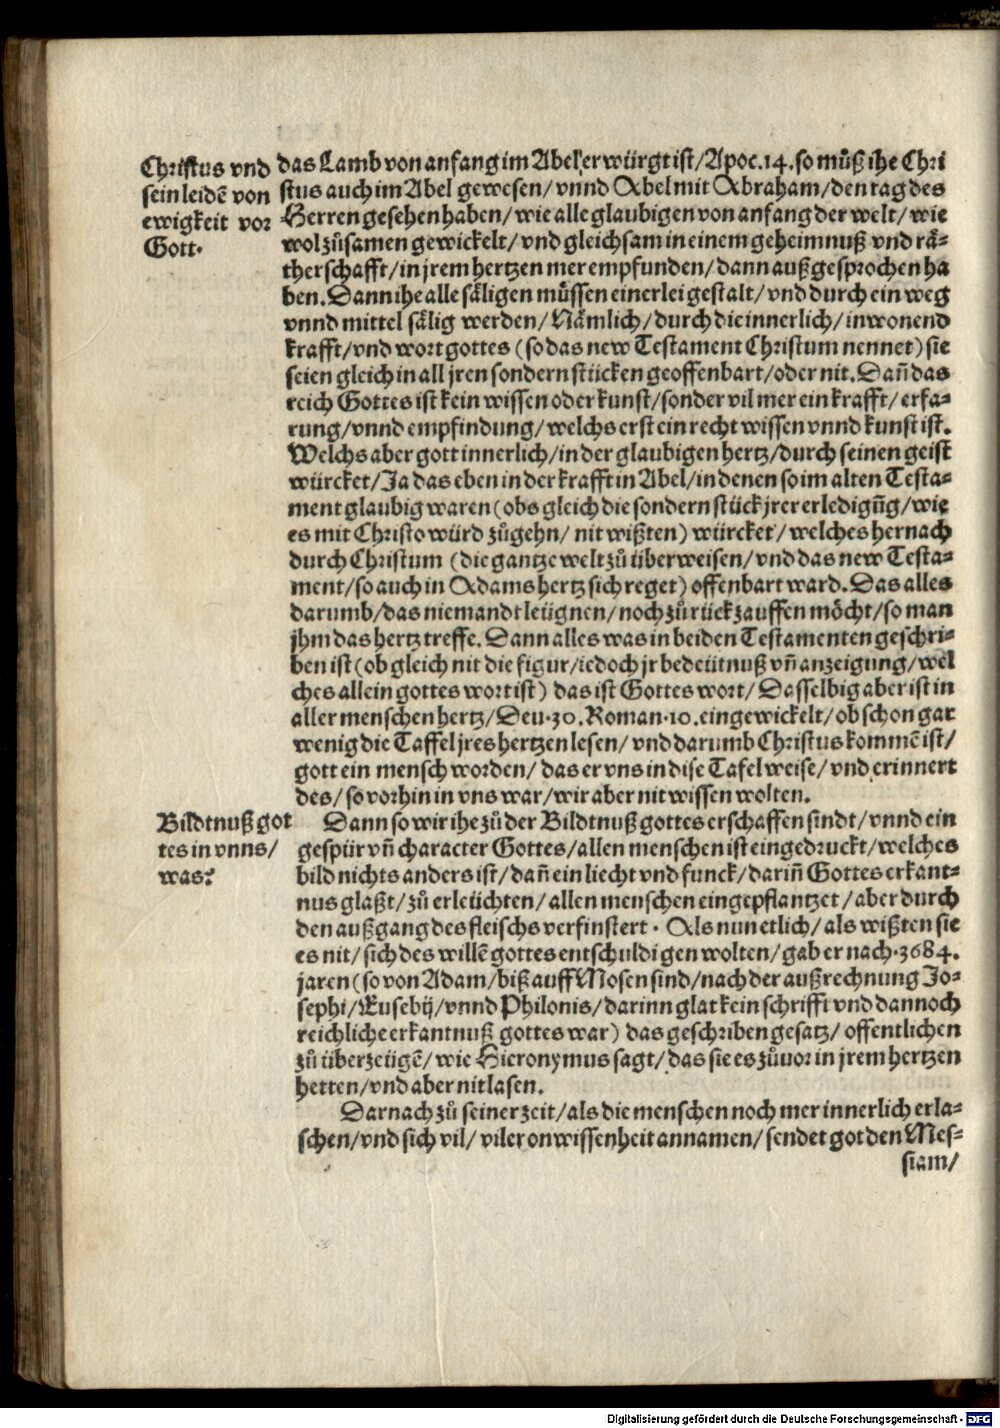 Christus vnd
sein leidē von
ewigkeit vor
Gott.
das Lamb von anfang im Abel erwürgt ist/Apoc.14.so můß ihe Chri
stus auch im Abel gewesen/vnnd Abel mit Abraham/den tag des
Herren gesehen haben/wie alle glaubigen von anfang der welt/wie
wol zůsamen gewickelt/vnd gleichsam in einem geheimnuß vnd rä-
therschafft/in jrem hertzen mer empfunden/dann außgesprochen ha
ben.Dann ihe alle säligen müssen einerlei gestalt/vnd durch ein weg
vnnd mittel sälig werden/Nämlich/durch die innerlich/inwonend
krafft/vnd wort gottes (so das new Testament Christum nennet) sie
seien gleich in all jren sondern stücken geoffenbart/oder nit.Dañ das
reich Gottes ist kein wissen oder kunst/sonder vil mer ein krafft/erfa-
rung/vnnd empfindung/welchs erst ein recht wissen vnnd kunst ist.
Welchs aber gott innerlich/in der glaubigen hertz/durch seinen geist
würcket/Ja das eben in der krafft in Abel/in denen so im alten Testa-
ment glaubig waren (obs gleich die sondern stück jrer erledigũg/wie
es mit Christo würd zůgehn/nit wißten) würcket/welches hernach
durch Christum (die gantze welt zů überweisen/vnd das new Testa-
ment/so auch in Adams hertz sich reget) offenbart ward.Das alles
darumb/das niemandt leügnen/noch zů rück zauffen möcht/so man
jhm das hertz treffe.Dann alles was in beiden Testamenten geschri-
ben ist (ob gleich nit die figur/iedoch jr bedeütnuß vñ anzeigung/wel
ches allein gottes wort ist) das ist Gottes wort/Dasselbig aber ist in
aller menschen hertz/Deu.30.Roman.10.eingewickelt/ob schon gar
wenig die Taffel jres hertzen lesen/vnd darumb Christus kommē ist/
gott ein mensch worden/das er vns in dise Tafel weise/vnd erinnert
des/so vorhin in vns war/wir aber nit wissen wolten.
Bildtnuß got
tes in vnns/
was?
Dann so wir ihe zů der Bildtnuß gottes erschaffen sindt/vnnd ein
gespür vñ character Gottes/allen menschen ist eingedruckt/welches
bild nichts anders ist/dañ ein liecht vnd funck/dariñ Gottes erkant-
nus glaßt/zů erleüchten/allen menschen eingepflantzet/aber durch
den außgang des fleischs verfinstert. Als nun etlich/als wißten sie
es nit/sich des willē gottes entschuldigen wolten/gab er nach.3684.
jaren (so von Adam/biß auff Mosen sind/nach der außrechnung Jo-
sephi/Eusebij/vnnd Philonis/darinn glat kein schrifft vnd dannoch
reichliche erkantnuß gottes war) das geschriben gesatz/offentlichen
zů überzeügē/wie Hieronymus sagt/das sie es zůuor in jrem hertzen
hetten/vnd aber nit lasen.
Darnach zů seiner zeit/als die menschen noch mer innerlich erla-
schen/vnd sich vil/viler onwissenheit annamen/sendet got den Mes-
siam/
Digitalisierung gefördert durch die Deutsche Forschungsgemeinschaft - DFG